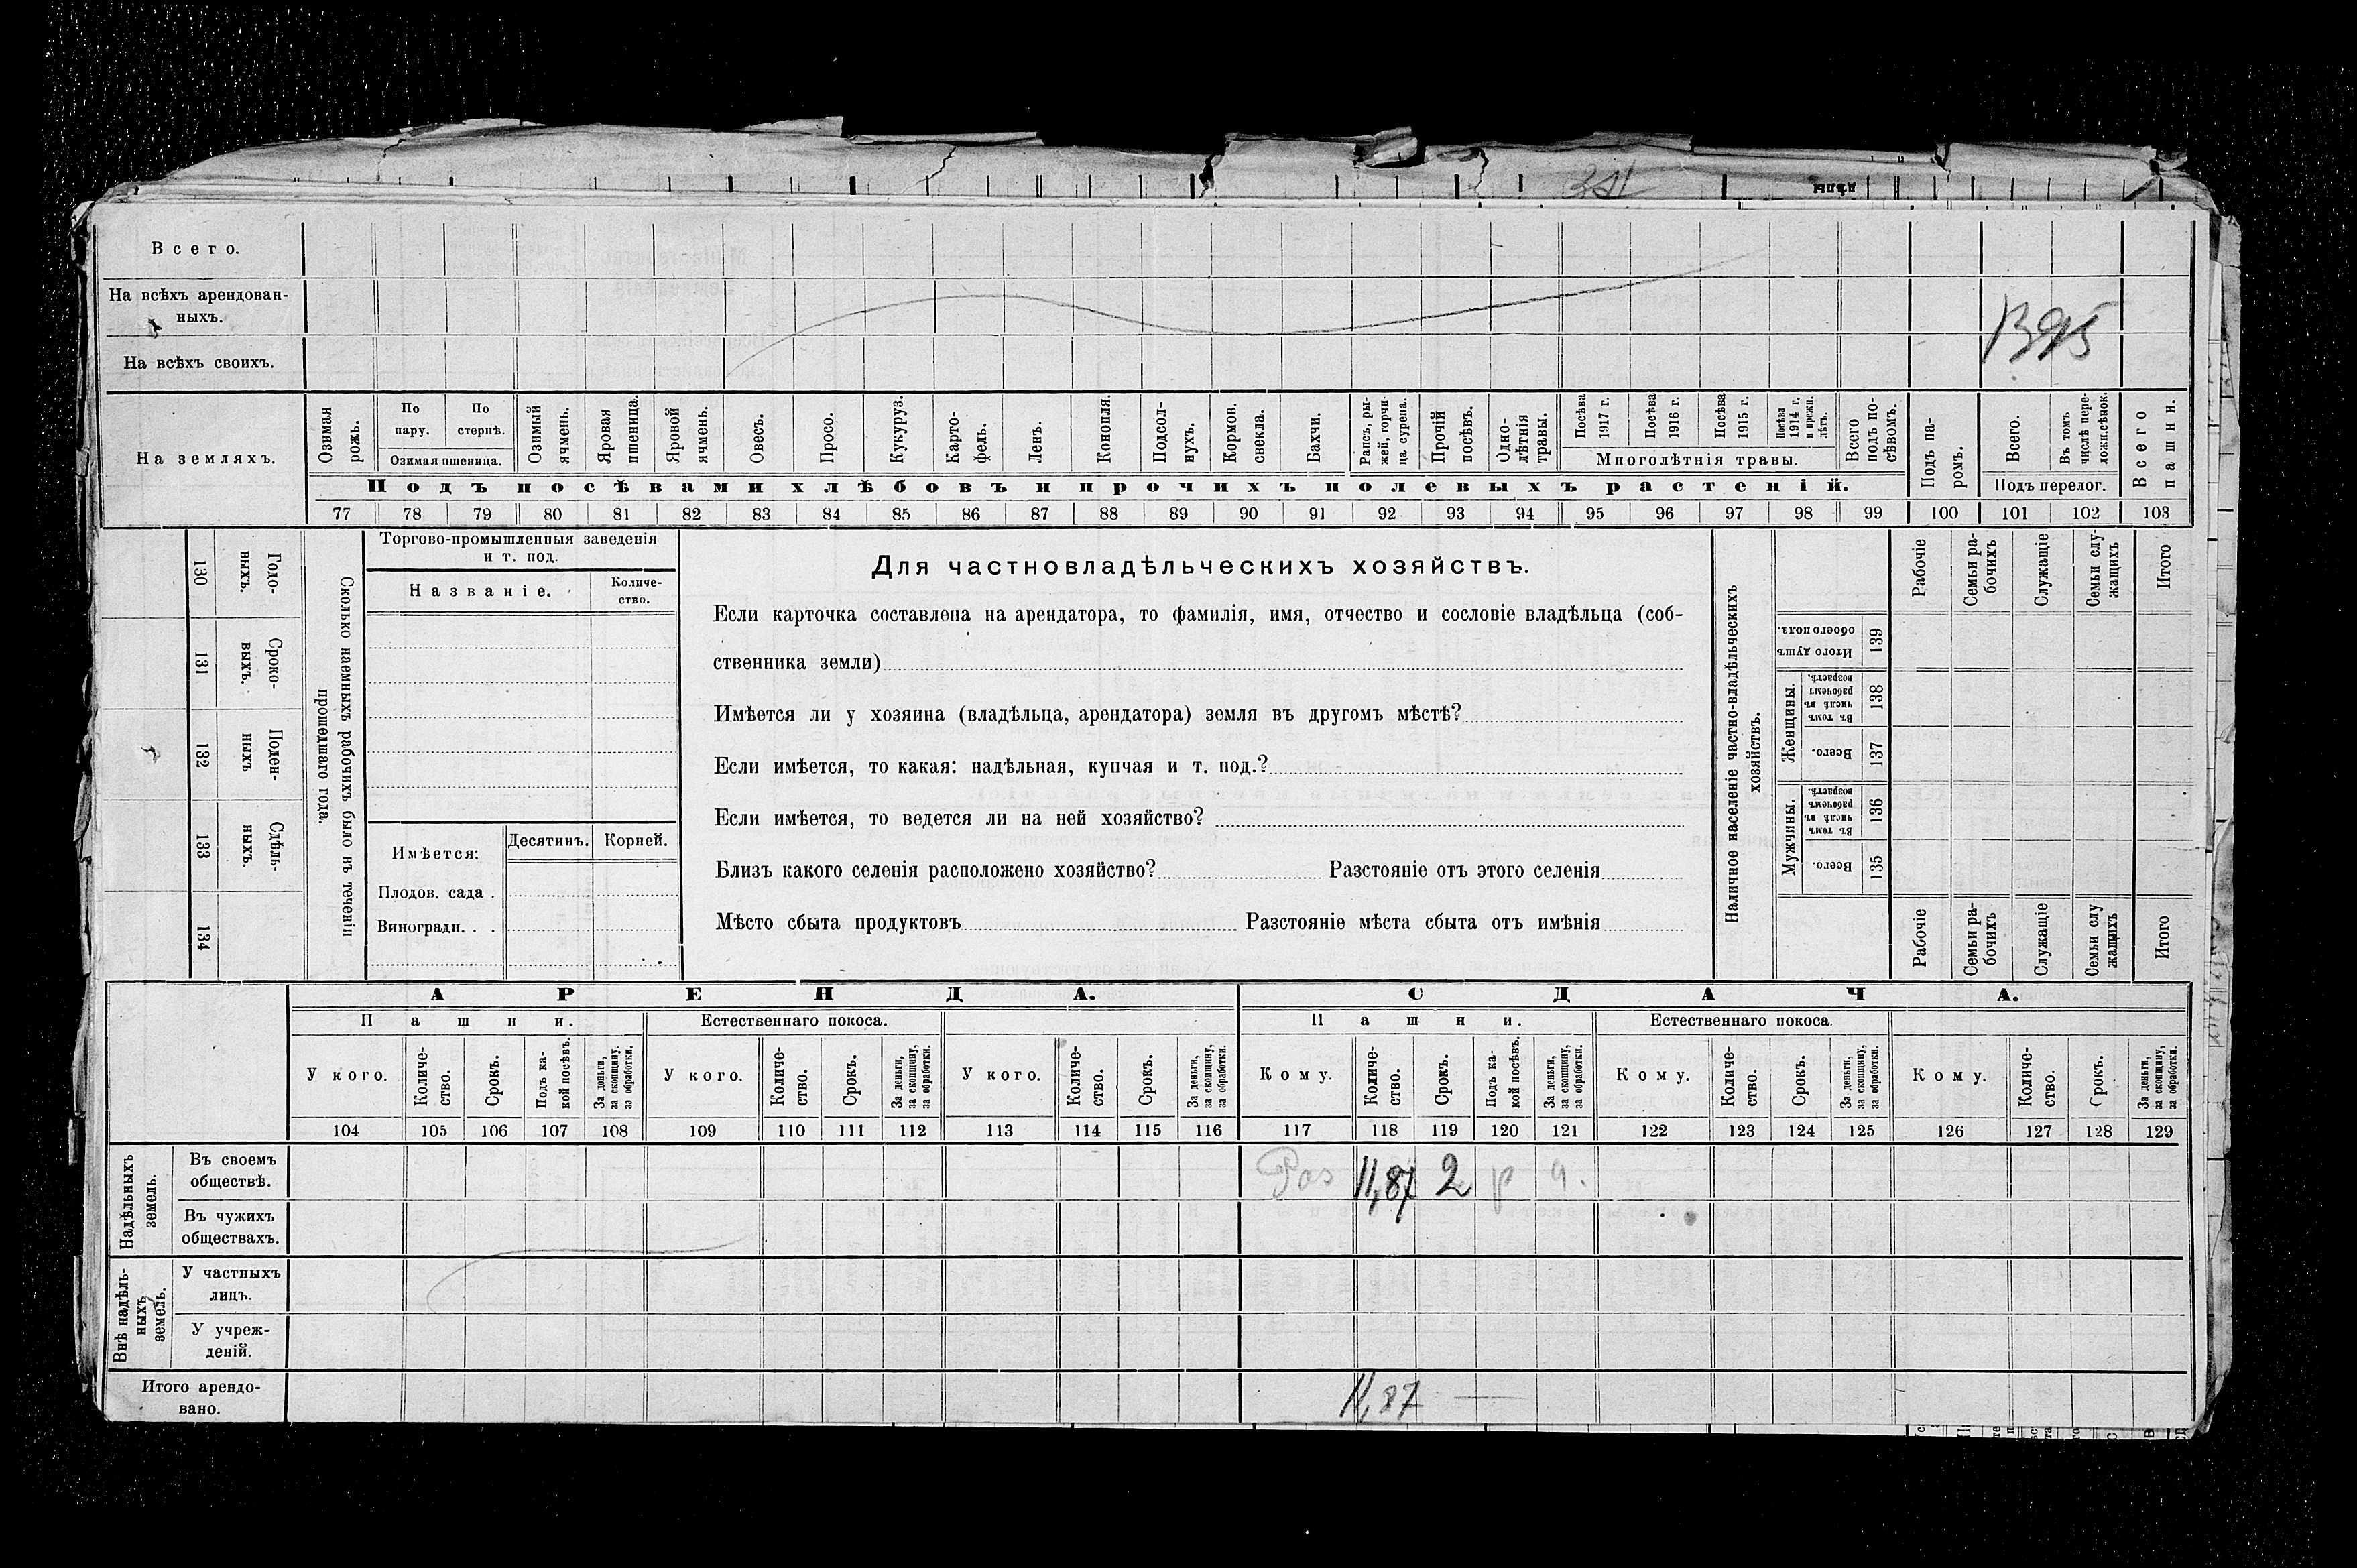 Всего.
На всѣхъ арендован-
ныхъ.
На всѣхъ своихъ.
На земляхъ.
Озимая рожь.
По пару.
По стернѣ.
Озимая пшеница.
Озимый ячмень.
Яровая пшеница.
Яровой ячмень.
Овесъ.
Просо.
Кукуруз.
Карто-
фель.
Ленъ.
Конопля.
Подсол-
нухъ.
Кормов. свекла.
Бахчи.
Рапсъ, ры-
жей, горчи-
ца сурепа.
Прочій посѣвъ.
Одно-
лѣтнія травы.
Посѣва 1917 г.
Посѣва 1916 г.
Посѣва 1915 г.
Посѣва 1914 г. и прежн. лѣтъ.
Многолѣтнія травы.
Всего подъ по-
сѣвомъ.
Подъ па-
ромъ.
Всего.
Въ томъ числѣ пере-
ложн. сѣнок.
Подъ перелог.
Всего пашни.
Подъ посѣвами хлѣбовъ и прочихъ полевыхъ растеній.
77 78 79 80 81 82 83 84 85 86 87 88 89 90 91 92 93 94 95 96 97 98 99 100 101 102 103
130 Годо-
выхъ.
131 Сроко-
ныхъ.
132 Поден-
ныхъ
133 Сдѣль-
ныхъ.
134
Сколько наемныхъ рабочихъ было въ теченіи
прошедшаго года.
Торгово-промышленныя заведенія
и т. под.
Названіе.
Количе-
ство.
Имѣется:
Десятин.
Корней.
Плодов. сада .
Виноградн. . .
Для частновладѣльческихъ хозяйствъ.
Если карточка составлена на арендатора, то фамилія, имя, отчество и сословіе владѣльца (соб-
ственника земли)
Имѣется ли у хозяина (владѣльца, арендатора) земля въ другомъ мѣстѣ?
Если имѣется, то какая: надѣльная, купчая и т. под.?
Если имѣется, то ведется ли на ней хозяйство?
Близъ какого селенія расположено хозяйство? Разстояніе отъ этого селенія
Мѣсто сбыта продуктовъ Разстояніе мѣста сбыта отъ имѣнія
Наличное населеніе частно-владѣльческихъ
хозяйствъ.
Рабочіе
Семьи ра-
бочихъ
Служащіе
Семьи слу-
жащихъ
Итого
Итого душъ обоего пола. 139
Женщины.
Въ томъ числѣ въ рабочемъ возрастѣ. 138
Всего. 137
Мужчины.
Въ томъ числѣ въ рабочемъ возрастѣ. 136
Всего. 135
Рабочіе
Семьи ра-
бочихъ
Служащіе
Семьи слу
жащихъ
Итого
АРЕНДА.
СДАЧА.
Пашни.
Естественнаго покоса.
Пашни.
Естественнаго покоса.
У кого.
Количе-
ство.
Срокъ.
Подъ ка-
кой посѣвъ.
За деньги,
за скопщину,
за обработки.
У кого.
Количе-
ство.
Срокъ.
За деньги,
за скопщину,
за обработки.
У кого.
Количе-
ство.
Срокъ.
За деньги,
за скопщину,
за обработки.
Кому.
Количе-
ство.
Срокъ.
Подъ ка-
кой посѣвъ.
За деньги,
за скопщину,
за обработки.
Кому.
Количе-
ство.
Срокъ.
За деньги,
за скопщину,
за обработки.
Кому.
Количе-
ство.
Срокъ.
За деньги,
за скопщину,
за обработки.
104 105 106 107 108 109 110 111 112 113 114 115 116 117 118 119 120 121 122 123 124 125 126 127 128 129
Надѣльныхъ
земель.
Въ своемъ
обществѣ.
11,87 2 р
Въ чужихъ
обществахъ.
Внѣ надѣль-
ныхъ
земель.
У частныхъ
лицъ.
У учреж-
деній.
Итого арендо-
вано.
11,87